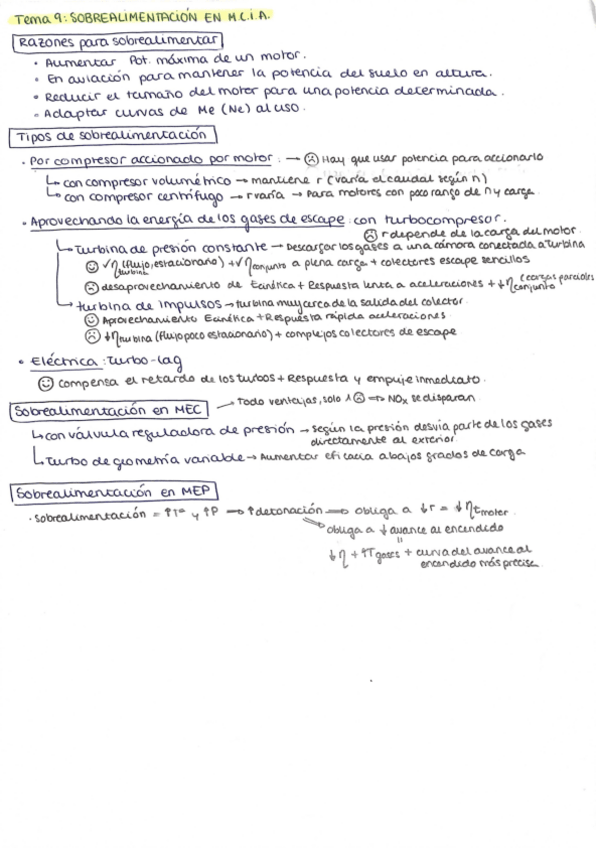 Tema 9: SOBREALIMENTACIÓN EN M.C.i.A.
Razones para sobrealimentar
• Aumentar Pot. máxima de un motor.
• En aviación para mantener la potencia del suelo en altura.
• Reducir el tamaño del motor para una potencia determinada.
• Adaptar curvas de Me (Ne) al uso.
Tipos de sobrealimentación
• Por compresor accionado por motor: → ☹ Hay que usar potencia para accionarlo
↳ con compresor volumétrico → mantiene r (varía el caudal según n)
↳ con compresor centrífugo → r varía → Para motores con poco rango de n y carga.
• Aprovechando la energía de los gases de escape: con turbocompresor.
☹ r depende de la carga del motor.
↳ Turbina de presión constante → Descargar los gases a una cámara conectada a turbina
☺ √η turbina (flujo estacionario) + √η conjunto a plena carga + colectores escape sencillos
☹ desaprovechamiento de Ecinética + Respuesta lenta a aceleraciones + ↓η conjunto (cargas parciales
↳ turbina de impulsos → turbina muy cerca de la salida del colector.
☺ Aprovechamiento Ecinética + Respuesta rápida aceleraciones.
☹ ↓η turbina (flujo poco estacionario) + complejos colectores de escape
• Eléctrica: Turbo-lag
☺ compensa el retardo de los turbos + Respuesta y empuje inmediato.
Sobrealimentación en MEC → Todo ventajas, solo 1 ☹ ⇒ NOx se disparan.
↳ con válvula reguladora de presión → según la presión desvia parte de los gases directamente al exterior.
↳ Turbo de geometría variable → Aumentar eficacia a bajos grados de carga
Sobrealimentación en MEP
• sobrealimentación = ↑Tª y ↑P → ↑detonación → obliga a ↓r = ↓ηt motor.
obliga a ↓ avance al encendido
=
↓η + ↑T gases + curva del avance al
encendido más precisa.